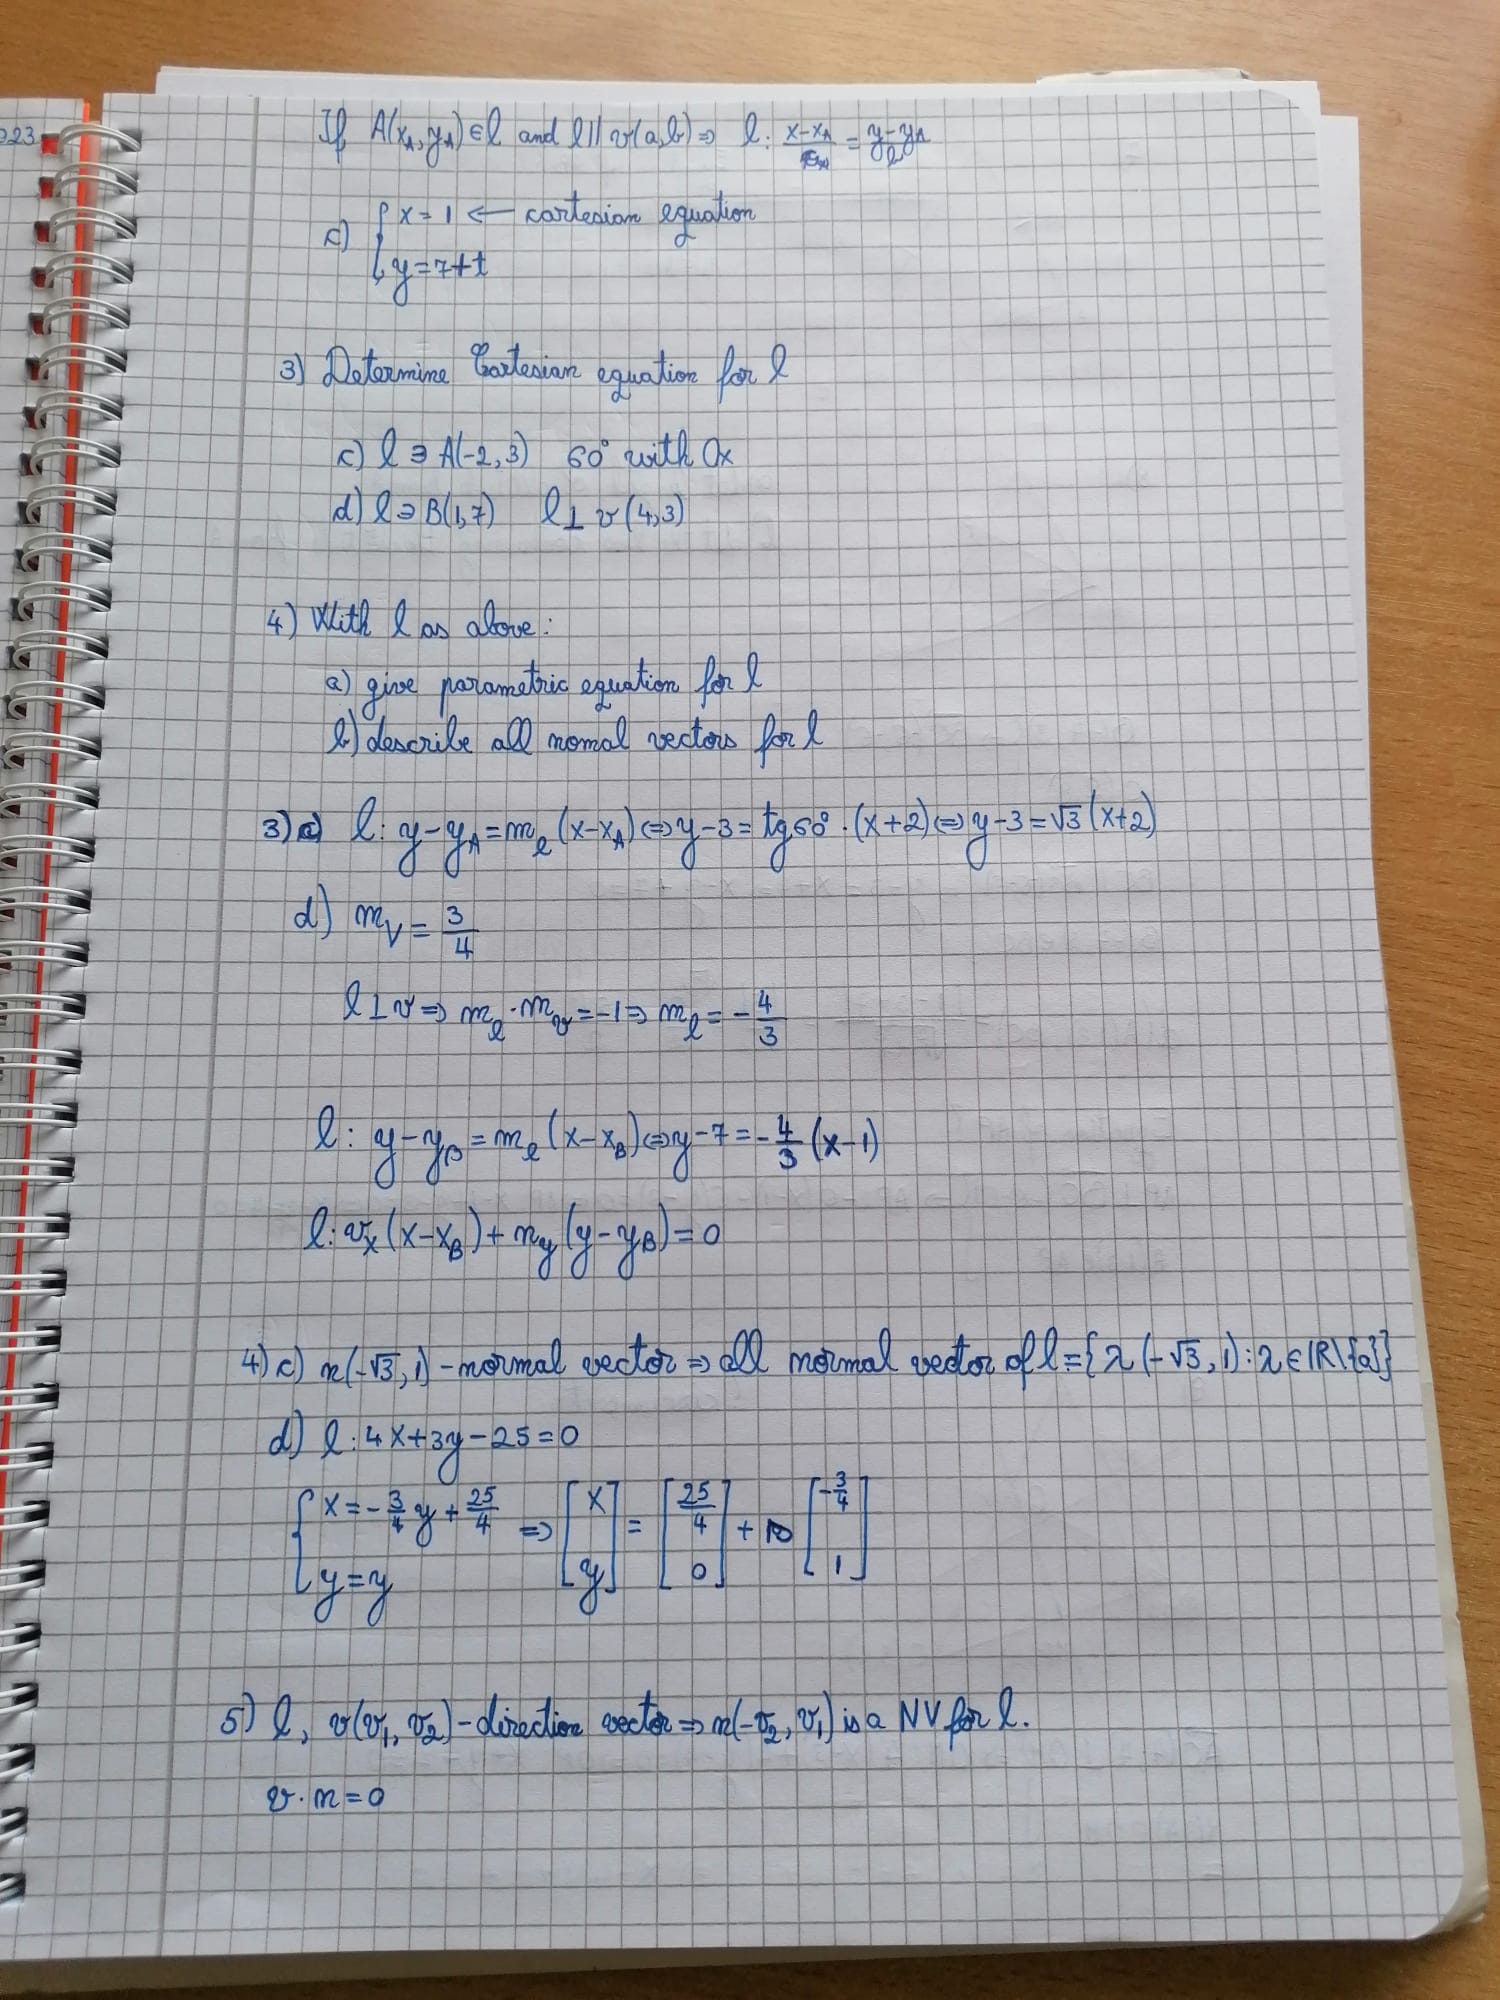 023
If A(x_A, y_A) ∈ l and l ∥ v(a, b) ⇒ l: (x-x_A)/ = (y-y_A)/b
c) { x = 1 ← cartesian equation
y = 7+t
3) Determine Cartesian equation for l
c) l ∋ A(-2, 3) 60° with Ox
d) l ∋ B(1, 7) l ⊥ v(4, 3)
4) With l as above:
a) give parametric equation for l
b) describe all nomal vectors for l
3) c) l: y-y_A = m_l (x-x_A) ⇔ y-3 = tg 60° · (x+2) ⇔ y-3 = √3 (x+2)
d) m_v = 3/4
l ⊥ v ⇒ m_l · m_v = -1 ⇒ m_l = -4/3
l: y-y_B = m_l (x-x_B) ⇔ y-7 = -4/3 (x-1)
l: v_x (x-x_B) + n_y (y-y_B) = 0
4) c) n(-√3, 1) - normal vector ⇒ all normal vector of l = {λ(-√3, 1) : λ ∈ ℝ\{a}}
d) l: 4x+3y-25 = 0
{ x = -3/4 y + 25/4 ⇒ [x] = [25/4] + [-3/4]
y = y [y] [0] [1]
5) l, v(v₁, v₂) - direction vector ⇒ n(-v₂, v₁) is a NV for l.
v · n = 0